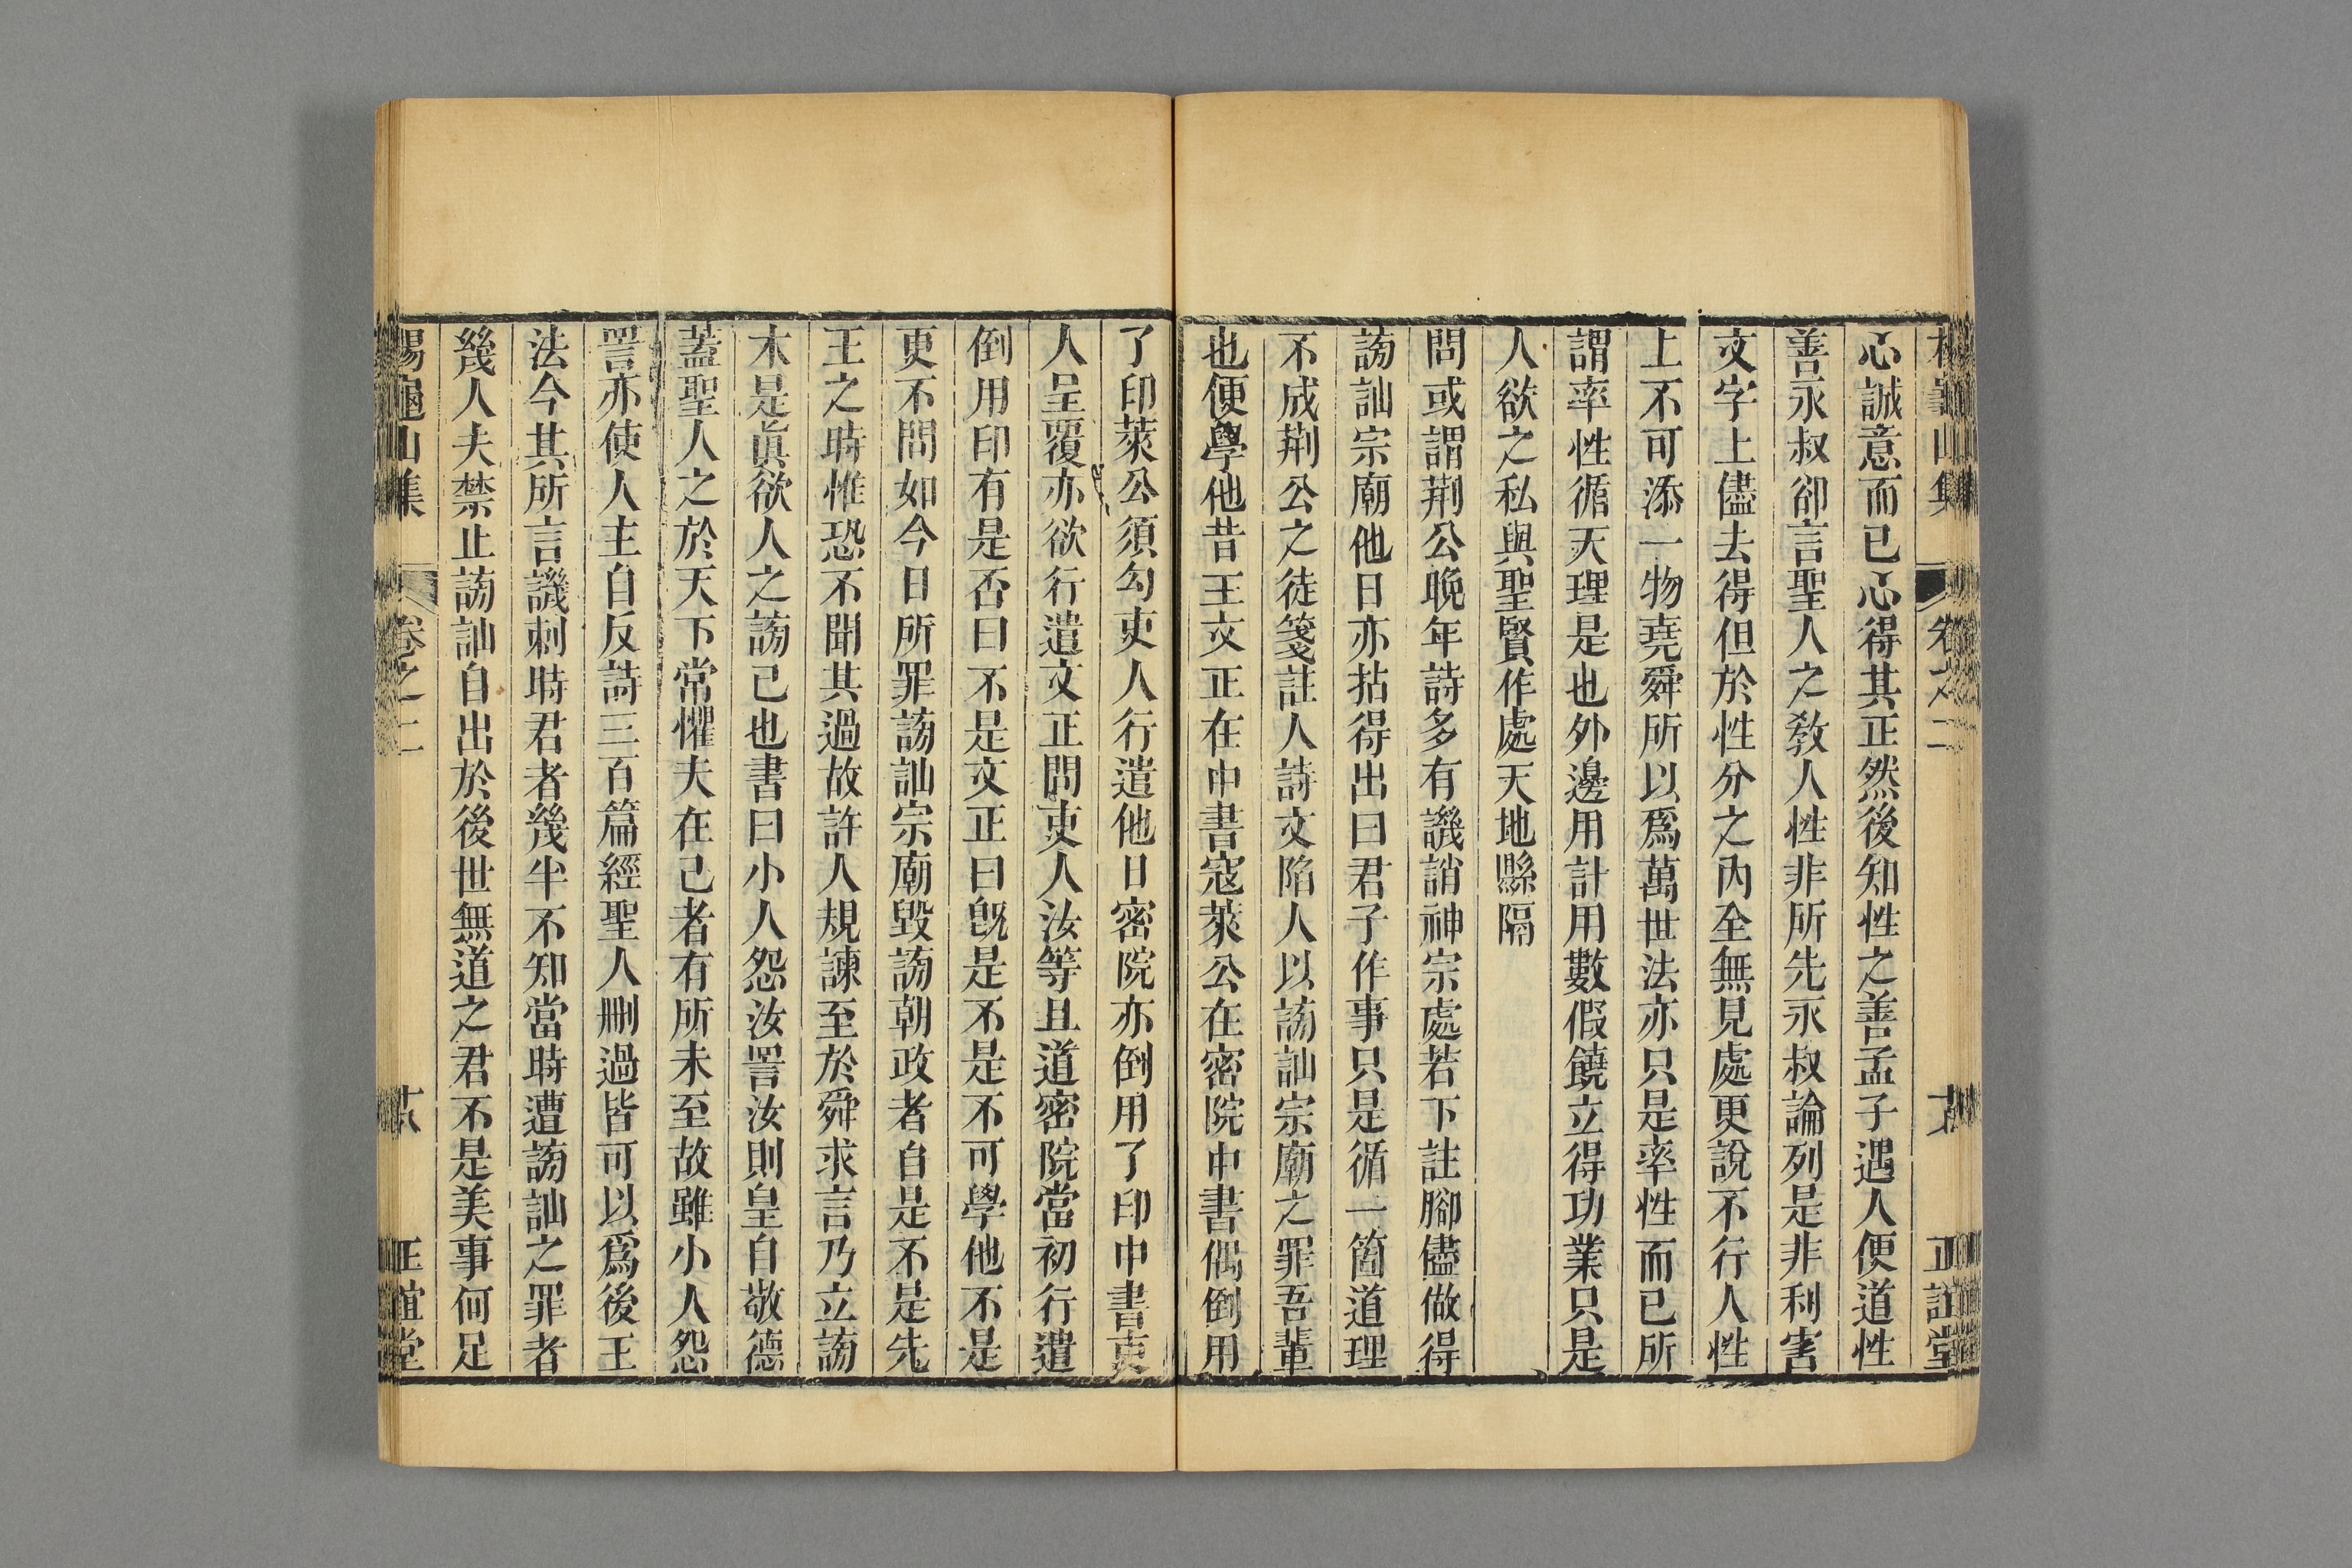 心誠意而已心得其正然後知性之善孟子遇人便道性
善永叔卻言聖人之教人性非所先永叔論列是非利害
文字上儘去得但於性分之內全無見處更說不行人性
上不可添一物堯舜所以爲萬世法亦只是率性而已所
謂率性循天理是也外邊用計用數假饒立得功業只是
人欲之私與聖賢作處天地縣隔
問或謂荆公晚年詩多有譏誚神宗處若下註腳儘做得
謗訕宗廟他日亦拈得出曰君子作事只是循一箇道理
不成荆公之徒箋註人詩文陷人以謗訕宗廟之罪吾輩
也便學他昔王文正在中書寇萊公在密院中書偶倒用
了印萊公須勾吏人行遣他日密院亦倒用了印中書吏
人呈覆亦欲行遣文正問吏人汝等且道密院當初行遣
倒用印有是否曰不是文正曰旣是不是不可學他不是
更不問如今日所罪謗訕宗廟毀謗朝政者自是不是先
王之時惟恐不聞其過故許人規諫至於舜求言乃立謗
木是眞欲人之謗己也書曰小人怨汝詈汝則皇自敬德
蓋聖人之於天下常懼夫在己者有所未至故雖小人怨
詈亦使人主自反詩三百篇經聖人刪過皆可以爲後王
法今其所言譏刺時君者幾半不知當時遭謗訕之罪者
幾人夫禁止謗訕自出於後世無道之君不是美事何足
楊龜山集 卷之二 正誼堂